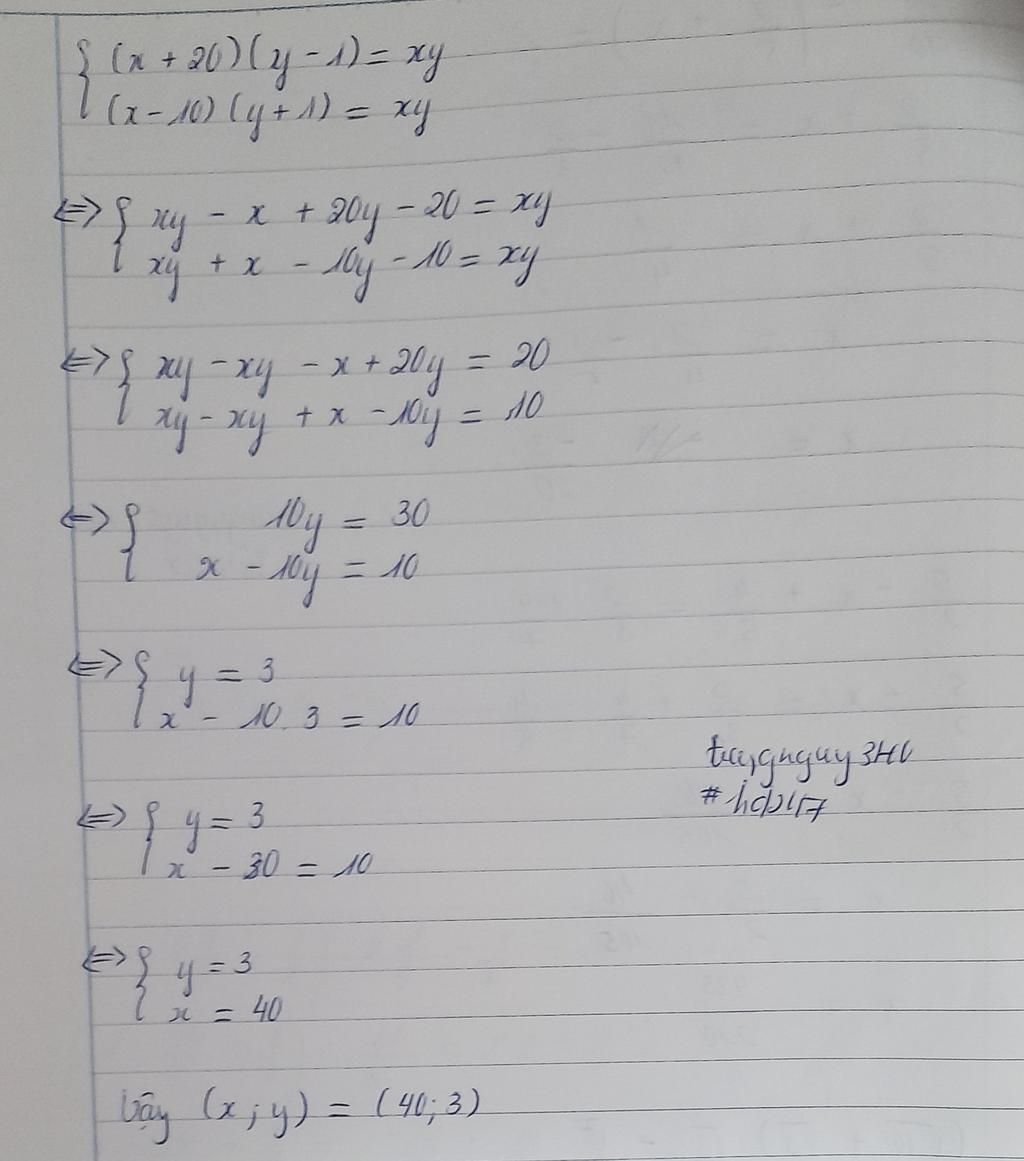 { (x + 20)(y - 1) = xy
(x - 10)(y + 1) = xy
<=> { xy - x + 20y - 20 = xy
xy + x - 10y - 10 = xy
<=> { xy - xy - x + 20y = 20
xy - xy + x - 10y = 10
<=> { 10y = 30
x - 10y = 10
<=> { y = 3
x - 10.3 = 10
<=> { y = 3
x - 30 = 10
<=> { y = 3
x = 40
Vậy (x; y) = (40; 3)